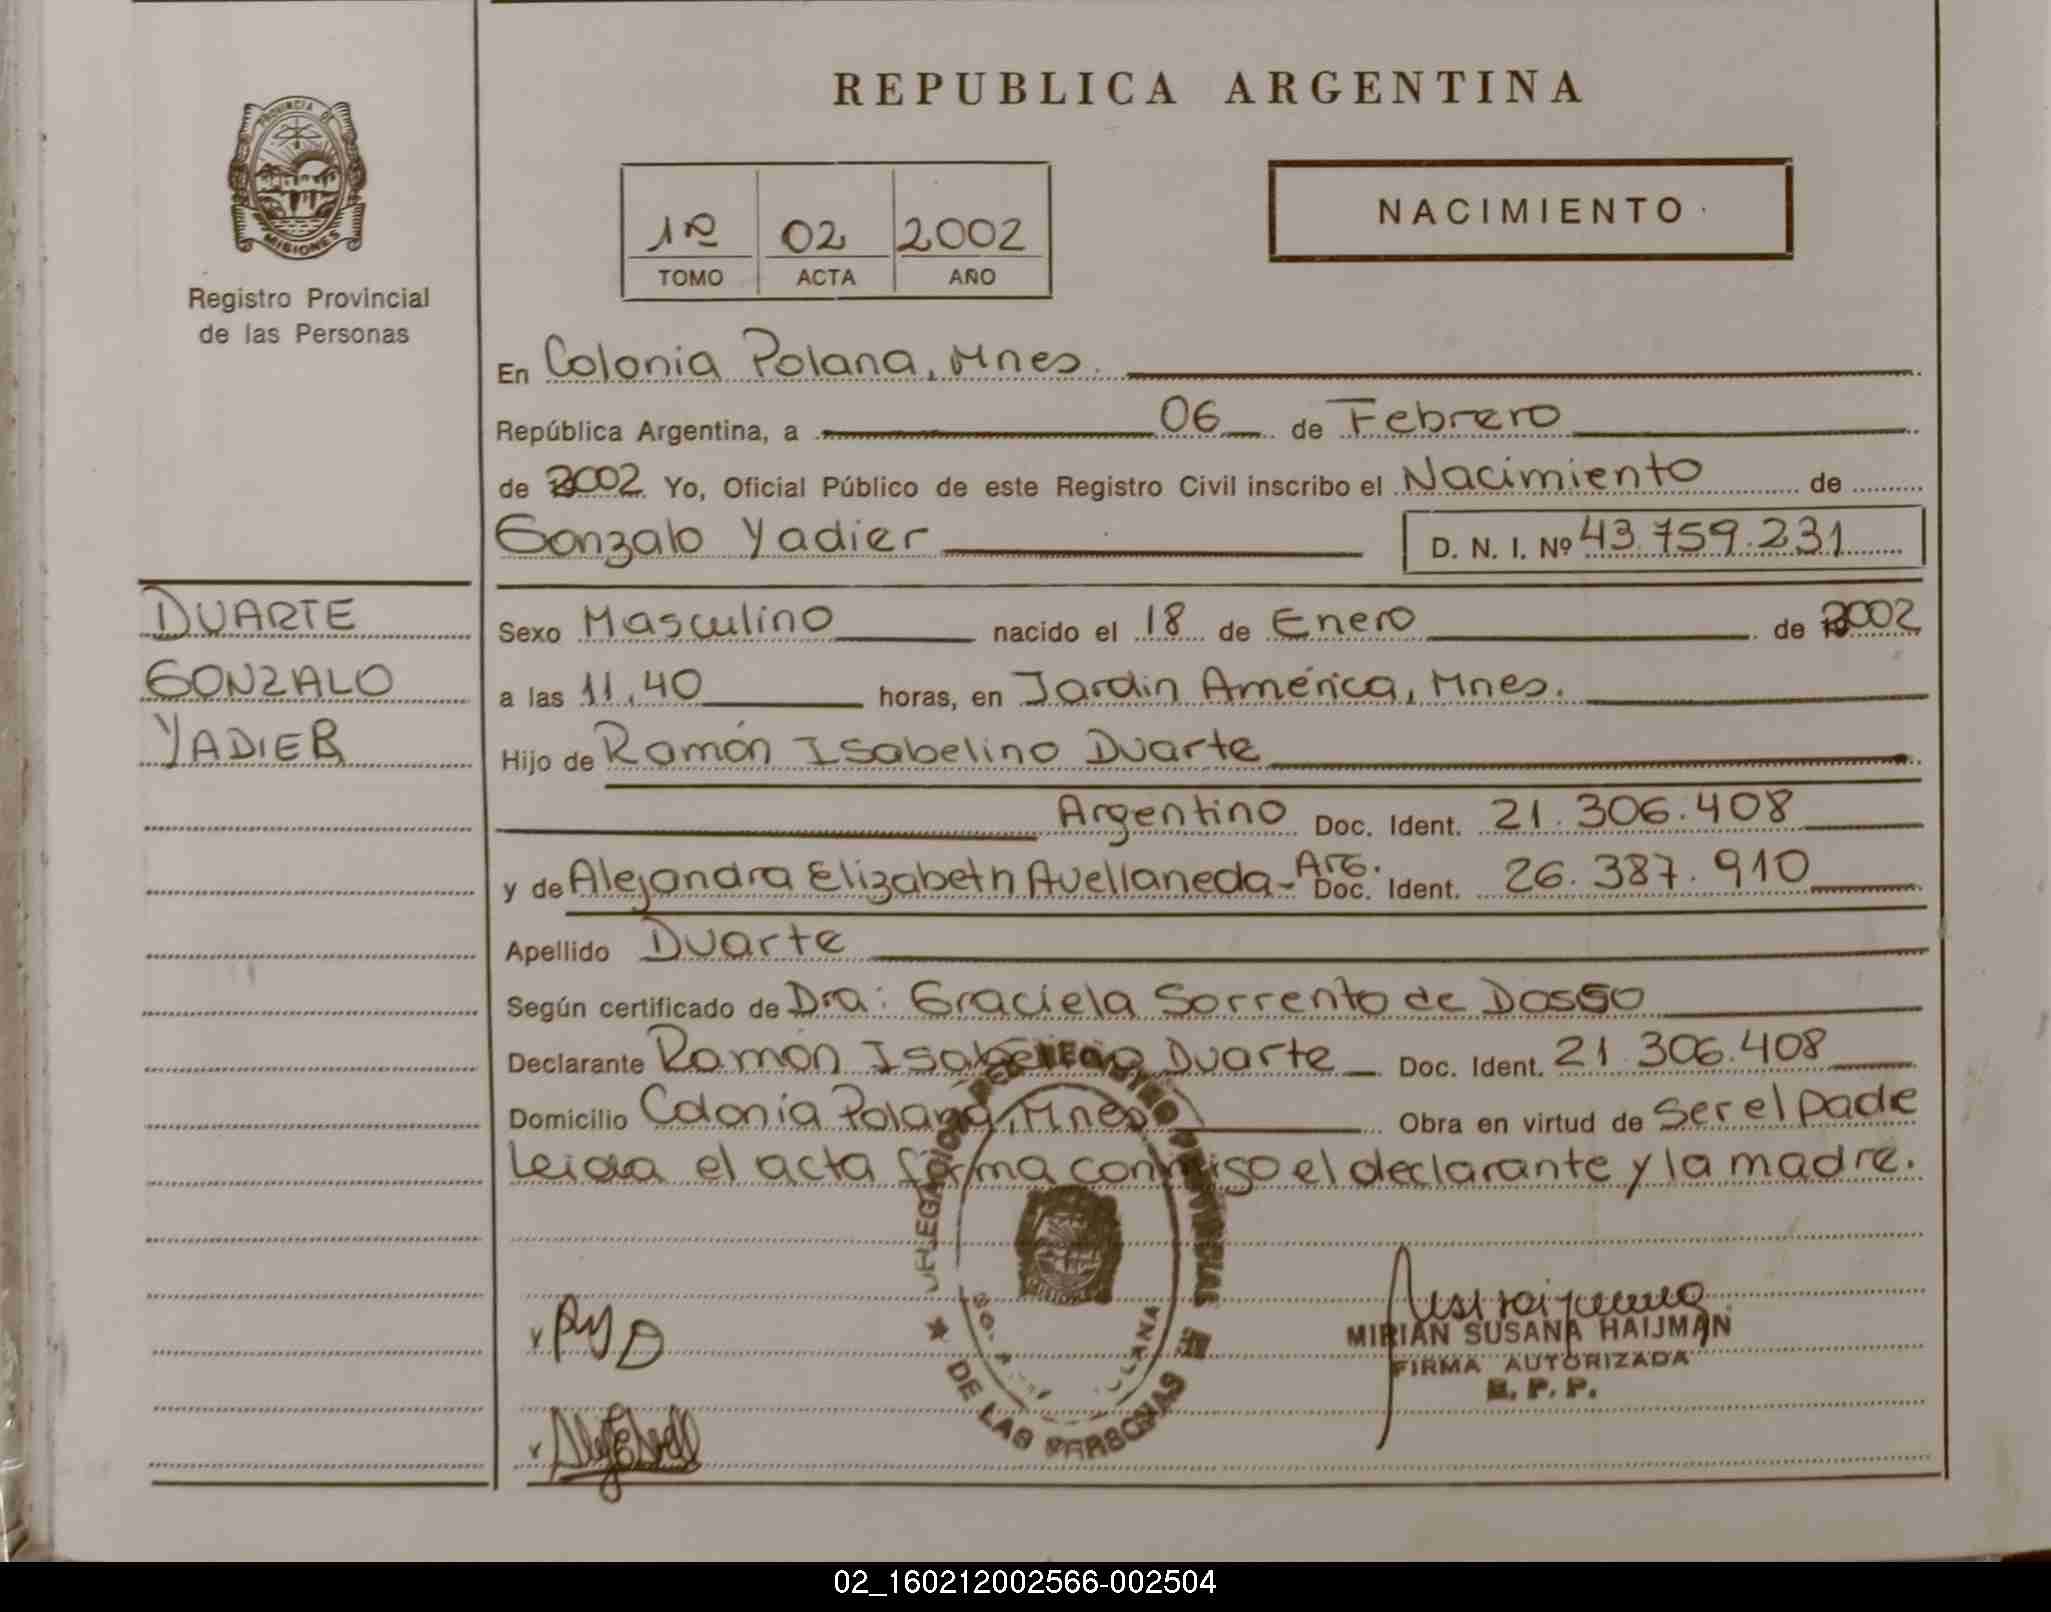 REPUBLICA ARGENTINA
PROVINCIA DE
MISIONES
Registro Provincial
de las Personas
1º 02 2002
TOMO ACTA AÑO
NACIMIENTO
En Colonia Polana, Mnes.
República Argentina, a 06 de Febrero
de 2002 Yo, Oficial Público de este Registro Civil inscribo el Nacimiento de
Gonzalo Yadier D. N. I. Nº 43.759.231
DUARTE
GONZALO
YADIER
Sexo Masculino nacido el 18 de Enero de 2002
a las 11.40 horas, en Jardin América, Mnes.
Hijo de Ramón Isabelino Duarte
Argentino Doc. Ident. 21.306.408
y de Alejandra Elizabeth Avellaneda - Arg. Doc. Ident. 26.387.910
Apellido Duarte
Según certificado de Dra: Graciela Sorrento de Dosso
Declarante Ramón Isabelino Duarte Doc. Ident. 21.306.408
Domicilio Colonia Polana, Mnes Obra en virtud de Ser el padre
Leida el acta firma conmigo el declarante y la madre.
DELEGACION DEL REGISTRO PROVINCIAL
DE LAS PERSONAS
MISIONES
RYD
MIRIAN SUSANA HAIJMAN
FIRMA AUTORIZADA
R. P. P.
02_160212002566-002504